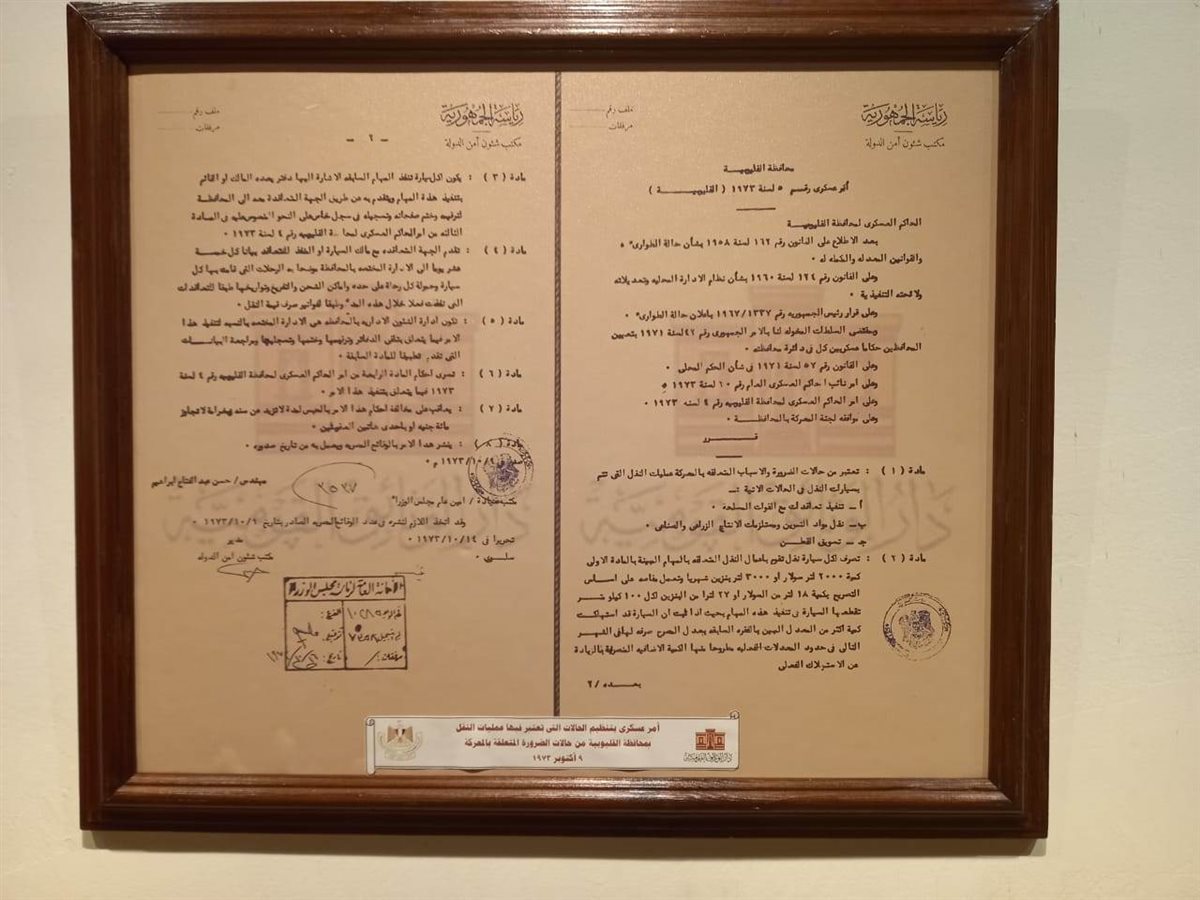 رئاسة الجمهورية
مكتب شئون أمن الدولة
ملف رقم
مرفقات
محافظة القليوبية
أمر عسكرى رقم ٥ لسنة ١٩٧٣ ( القليوبية )
الحاكم العسكرى لمحافظة القليوبية
بعد الاطلاع على القانون رقم ١٦٢ لسنة ١٩٥٨ بشأن حالة الطوارىء
والقوانين المعدله والمكمله له ٠
وعلى القانون رقم ١٢٤ لسنة ١٩٦٠ بشأن نظام الادارة المحليه وتعديلاته
ولائحته التنفيذية ٠
وعلى قرار رئيس الجمهوريه رقم ١٩٦٧/١٣٣٧ باعلان حالة الطوارىء ٠
وبمقتضى السلطات المخوله لنا بالامر الجمهورى رقم ٤٢ لسنة ١٩٧١ بتعيين
المحافظين حكاما عسكريين كل فى دائرة محافظته ٠
وعلى القانون رقم ٥٧ لسنة ١٩٧١ فى شأن الحكم المحلى ٠
وعلى امر نائب الحاكم العسكرى العام رقم ١٠ لسنة ١٩٧٣ ٠
وعلى امر الحاكم العسكرى لمحافظة القليوبيه رقم ٤ لسنه ١٩٧٣ ٠
وعلى موافقه لجنة المعركة بالمحافظة ٠
قرر
مادة ( ١ ) : تعتبر من حالات الضرورة والاسباب المتعلقه بالمعركة عمليات النقل التى تتم
بسيارات النقل فى الحالات الاتية :ـ
أ ـ تنفيذ تعاقدات مع القوات المسلحة ٠
ب ـ نقل مواد التموين ومستلزمات الانتاج الزراعى والصناعى ٠
جـ ـ تسويق القطن
مادة ( ٢ ) : تصرف لكل سيارة نقل تقوم باعمال النقل المتعلقه بالمهام المبينة بالمادة الاولى
كمية ٢٠٠٠ لتر سولار أو ٣٠٠٠ لتر بنزين شهريا وتعمل مقاسه على اساس
التصريح بكمية ١٨ لتر من السولار أو ٢٧ لترا من البنزين لكل ١٠٠ كيلو متر
تقطعها السيارة فى تنفيذ هذه المهام بحيث اذا ثبت ان السيارة قد استهلكت
كمية اكثر من المعدل المبين بالفقره السابقه يعدل المصرح صرفه لها فى الشهر
التالى فى حدود المعدلات الفعليه مطروحا منها الكمية الاضافيه المنصرفة بالزيادة
عن الاستهلاك الفعلى
بعده /٢
رئاسة الجمهورية
مكتب شئون أمن الدولة
ملف رقم
مرفقات
ـ ٢ ـ
مادة ( ٣ ) : يكون لكل سيارة تنفذ المهام السابقه الاشارة اليها دفتر يعده المالك او القائم
بتنفيذ هذة المهام ويتقدم به عن طريق الجهة المتعاقدة معه الى المحافظة
لترقيمه وختم صفحاته وتسجيله فى سجل خاص على النحو المنصوص عليه فى المادة
الثالثه من امر الحاكم العسكرى لمحافظة القليوبيه رقم ٤ لسنة ١٩٧٣ ٠
مادة ( ٤ ) : تقدم الجهة المتعاقده مع مالك السيارة او المنفذ للتعاقد بيانا كل خمسة
عشر يوما الى الادارة المختصه بالمحافظة موضحا به الرحلات التى قامت بها كل
سيارة وحمولة كل رحلة على حده واماكن الشحن والتفريغ وتواريخها طبقا للتعاقدات
التى نفذت فعلا خلال هذه المدة وطبقا لفواتير صرف قيمة النقل ٠
مادة ( ٥ ) : تكون ادارة الشئون الاداريه بالمحافظه هى الادارة المختصه بالنسبه لتنفيذ هذا
الامر فيما يتعلق بتلقى الدفاتر وترقيمها وختمها وتسجيلها ومراجعة البيانات
التى تقدم تطبيقا للمادة السابقة ٠
مادة ( ٦ ) : تسرى احكام المادة الرابعة من امر الحاكم العسكرى لمحافظة القليوبيه رقم ٤ لسنة
١٩٧٣ فيما يتعلق بتنفيذ هذا الامر ٠
مادة ( ٧ ) : يعاقب على مخالفة احكام هذا الامر بالحبس لمدة لا تزيد عن سنه وبغرامة لا تجاوز
مائة جنيه او باحدى هاتين العقوبتين ٠
مادة ( ٨ ) : ينشر هذا الامر بالوقائع المصريه ويعمل به من تاريخ صدوره ٠
١٩٧٣/١٠/٩ م ٠
مهندس / حسن عبد الفتاح ابراهيم
٣٥٣٧
السيد / امين عام مجلس الوزراء
وقد اتخذ اللازم لنشره فى عدد الوقائع المصريه الصادر بتاريخ ١٩٧٣/١٠/٩ ٠
تحريرا فى ١٩٧٣/١٠/١٤ ٠
مدير
مكتب شئون امن الدوله
سلوى ٠
الأمانة العامة لمجلس الوزراء
دار الوثائق القومية
أمر عسكرى بتنظيم الحالات التى تعتبر فيها عمليات النقل
بمحافظة القليوبية من حالات الضرورة المتعلقة بالمعركة
٩ أكتوبر ١٩٧٣
دار الوثائق القومية